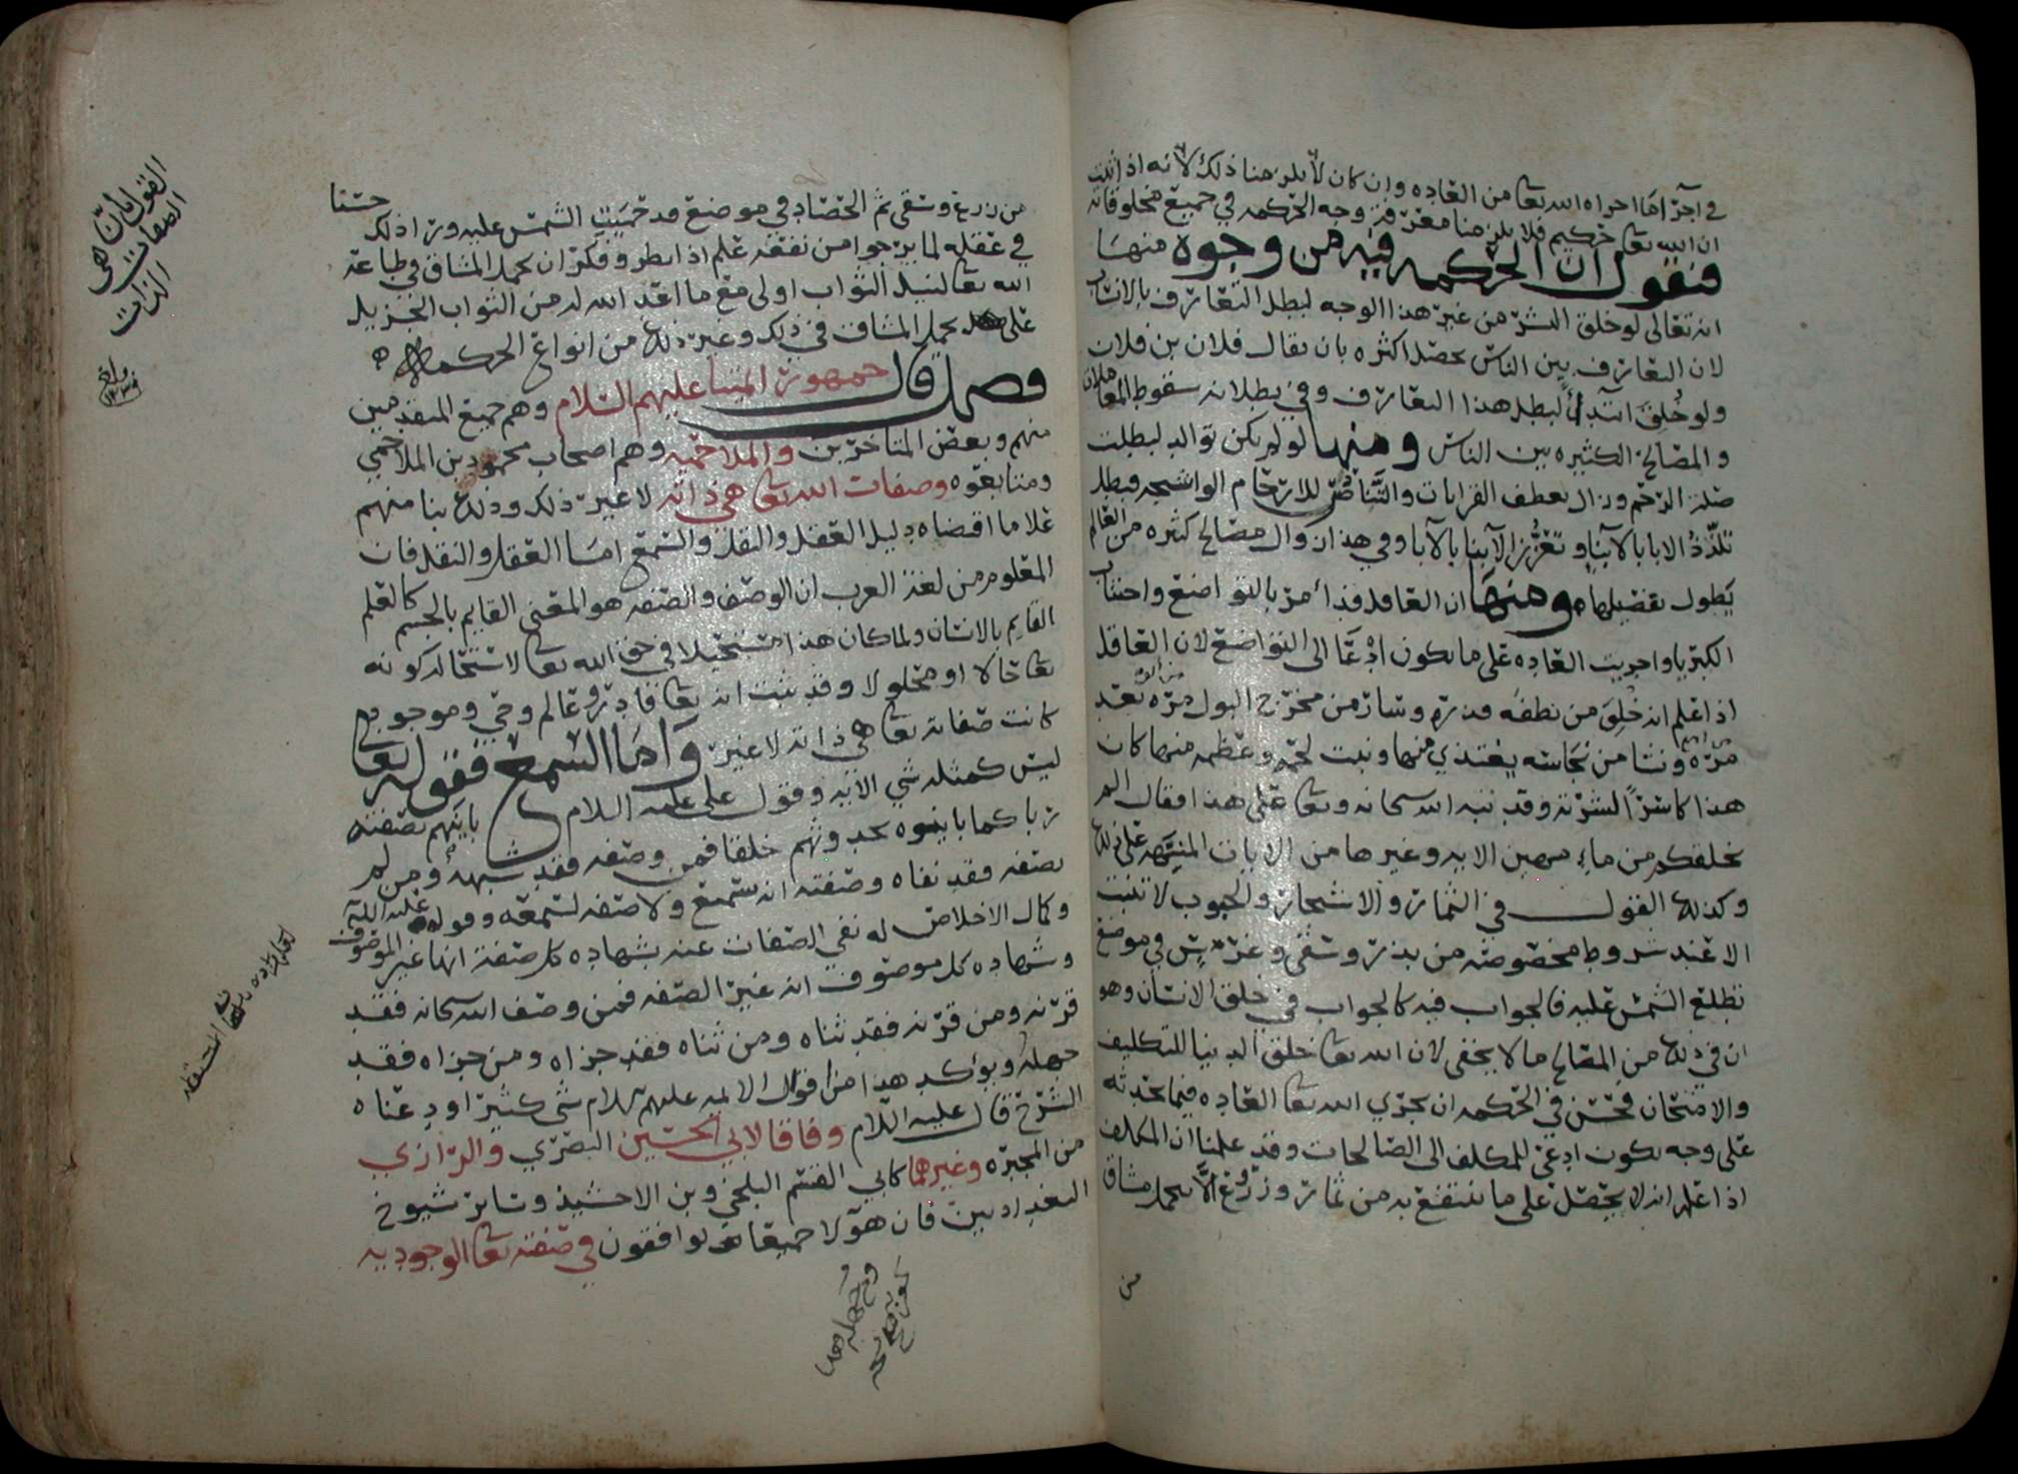 في اجرا ما اجراه الله تعا من العاده وان كان لا يلزمنا ذلك لانه اذا ثبت
ان الله تعا حكيم فلا يلزمنا معرفة وجه الحكمه في جميع مخلوقاته
فنقول ان الحكمه فيه من وجوه منها
انه تعالى لو خلق البشر من غير هذا الوجه لبطل التعارف بالانساب
لان التعارف بين الناس يحصل اكثره بان يقال فلان بن فلان
ولو خلق ابتداً لبطل هذا التعارف وفي بطلانه سقوط المعاملات
والمصالح الكثيره بين الناس ومنها لو لم يكن توالد لبطلت
صلة الرحم وزال تعطف القرابات والتناصر للارحام الواشجه وبطل
تلذذ الابا بالابنا وتعزز الابنا بالابا وفي هذا زوال مصالح كثره من العالم
يطول تفصيلها ومنها ان العاقل قد أمر بالتواضع واجتناب
الكبريا واجريت العاده على ما يكون ادعا الى التواضع لان العاقل
اذا علم انه خلق من نطفه قذره وسار من مخرج البول مره بعد
مره ونشا من نجاسه يغتذي منها ونبت لحمه وعظمه منها كان
هذا كاسراً لشرته وقد نبه الله سبحانه وتعا على هذا فقال الم
نخلقكم من ماء مهين الايه وغيرها من الايات المنبهه على ذلك
وكذلك القول في الثمار والاشجار والحبوب لا تنبت
الا عند شروط مخصوصه من بذر وسقي وغرس في موضع
تطلع الشمس عليه فالجواب فيه كالجواب في خلق الانسان وهو
ان في ذلك من المصالح ما لا يخفى لان الله تعا خلق الدنيا للتكليف
والامتحان فحسن في الحكمه ان يجري الله تعا العاده فيما يحدثه
على وجه يكون ادعى للمكلف الى الصالحات وقد علمنا ان المكلف
اذا علم انه لا يحصل على ما ينتفع به من ثمار وزروع الا بحمل مشاق
من
من زرع وسقي ثم الحصاد في موضع قد حميت الشمس عليه وراذلك حسنا
في عقله لما يرجوا من نفعه علم اذا نظر وفكر ان تحمل المشاق في طاعة
الله تعا لنيل الثواب اولى مع ما اعد الله له من الثواب الجزيل
على تحمل المشاق في ذلك وغير ذلك من انواع الحكمه
فصل قال جمهور ائمتنا عليهم السلام وهم جميع المتقدمين
منهم وبعض المتاخرين والملاحميه وهم اصحاب محمود بن الملاحمي
ومتابعوه وصفات الله تعا هي ذاته لا غير ذلك وذلك بنا منهم
علا ما اقتضاه دليل العقل والنقل والسمع اما العقل والنقل فان
المعلوم من لغة العرب ان الوصف والصفه هو المعنى القايم بالجسم كالعلم
القايم بالانسان ولما كان هذا مستحيلا في حق الله تعا لاستحالة كونه
تعا حالا او محلولا وقد ثبت انه تعا قادر وعالم وحي وموجود
كانت صفاته تعا هي ذاته لا غير واما السمع فقوله تعا
ليس كمثله شي الايه وقول علي عليه السلام باينهم بصفته
ربا كما باينوه بحدوثهم خلقا فمن وصفه فقد شبهه ومن لم
يصفه فقد نفاه وصفته انه سميع ولا صفه لسمعه وقوله عليه السلم
وكمال الاخلاص له نفي الصفات عنه بشهاده كل صفة انها غير الموصوف
وشهاده كل موصوف انه غير الصفه فمن وصف الله سبحانه فقد
قرنه ومن قرنه فقد ثناه ومن ثناه فقد جزاه ومن جزاه فقد
جهله ويؤكد هذا من اقوال الايمه عليهم السلام شي كثير اودعناه
الشرح قال عليه السلام وفاقا لابي الحسين البصري والرازي
من المجبره وغيرهما كابي القسم البلخي وبن الاخشيذ وساير شيوخ
البغداديين فان هؤلا جميعا يوافقون في صفته تعا الوجوديه
القول بان
الصفات هي
الذات